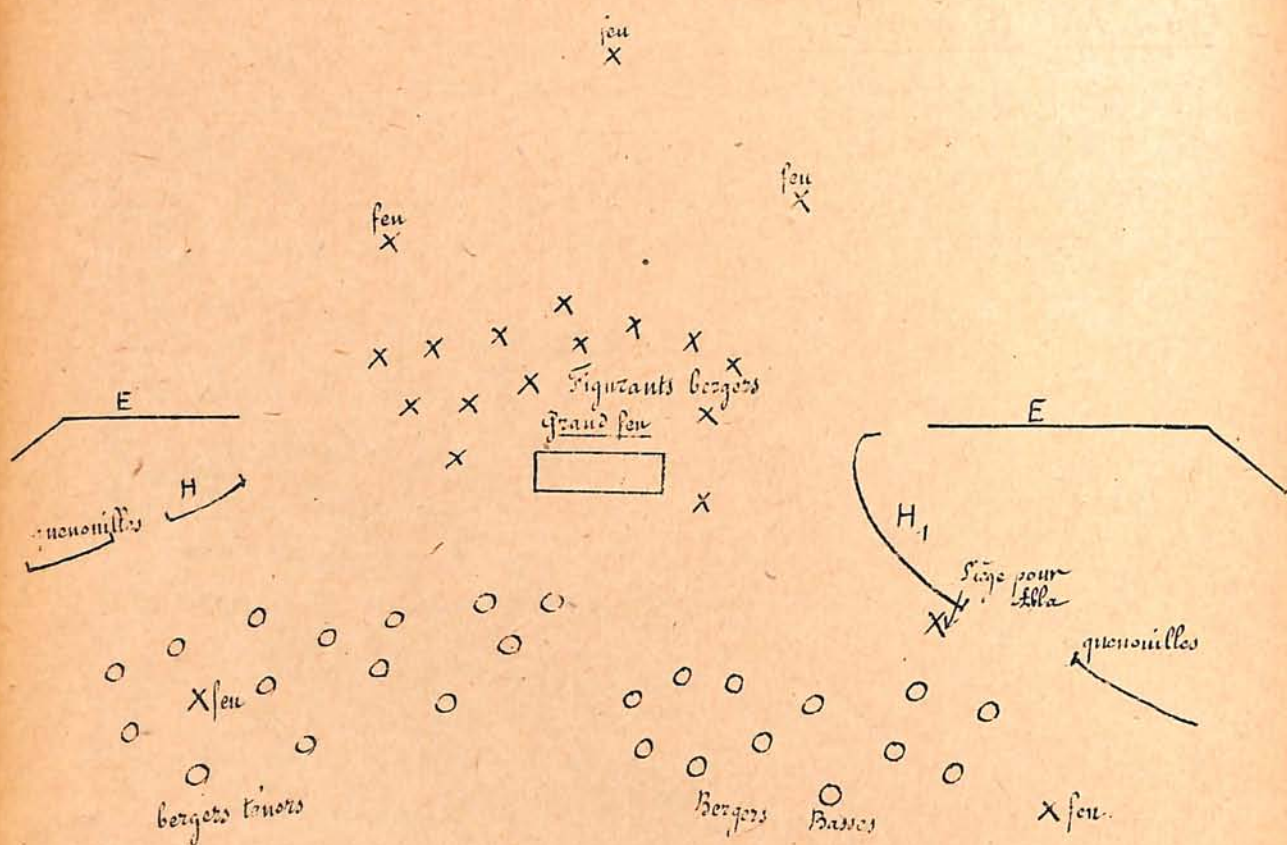 feu
X
feu
X
feu
X
X X X X X X X X
X X X X
Figurants bergers
Grand feu
X X
E
E
H
H1
quenouilles
Siège pour
Abla
X
quenouilles
X feu
bergers ténors
Bergers Basses
X feu